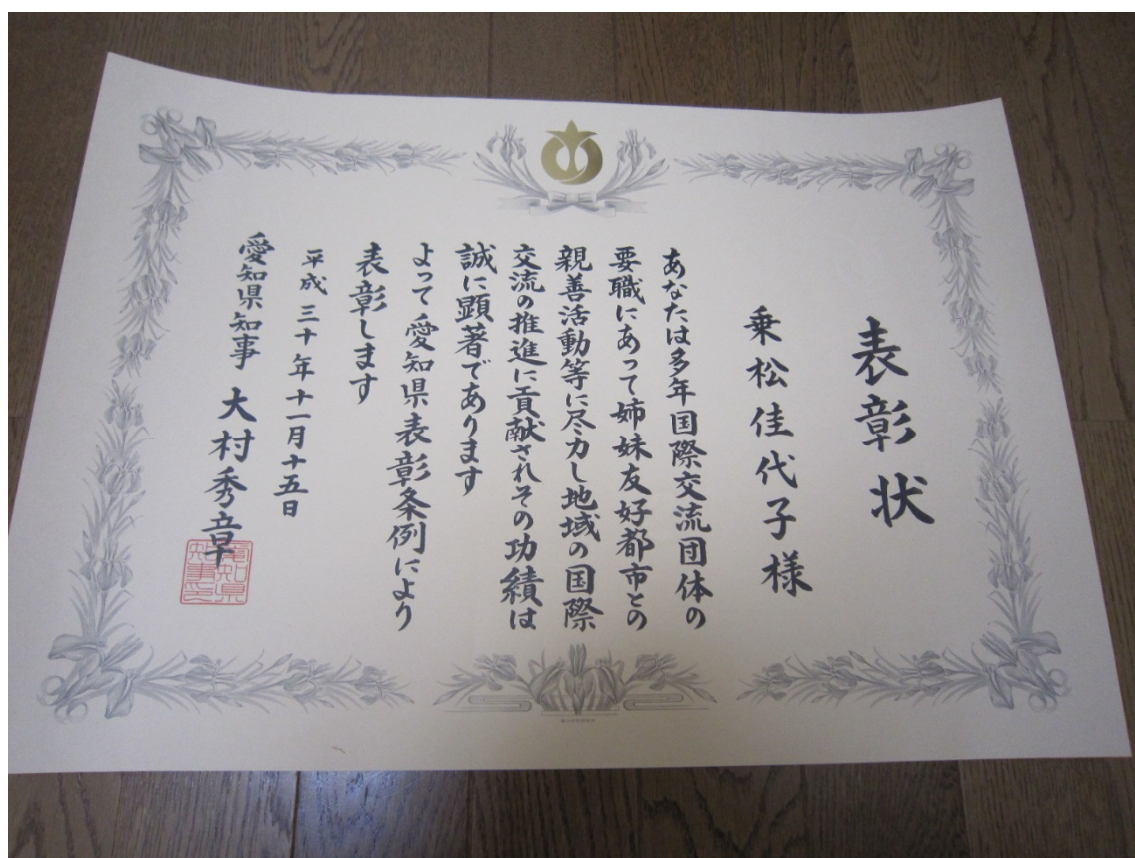 表彰状
乗松佳代子様
あなたは多年国際交流団体の
要職にあって姉妹友好都市との
親善活動等に尽力し地域の国際
交流の推進に貢献されその功績は
誠に顕著であります
よって愛知県表彰条例により
表彰します
平成三十年十一月十五日
愛知県知事 大村秀章
愛知県
知事之印